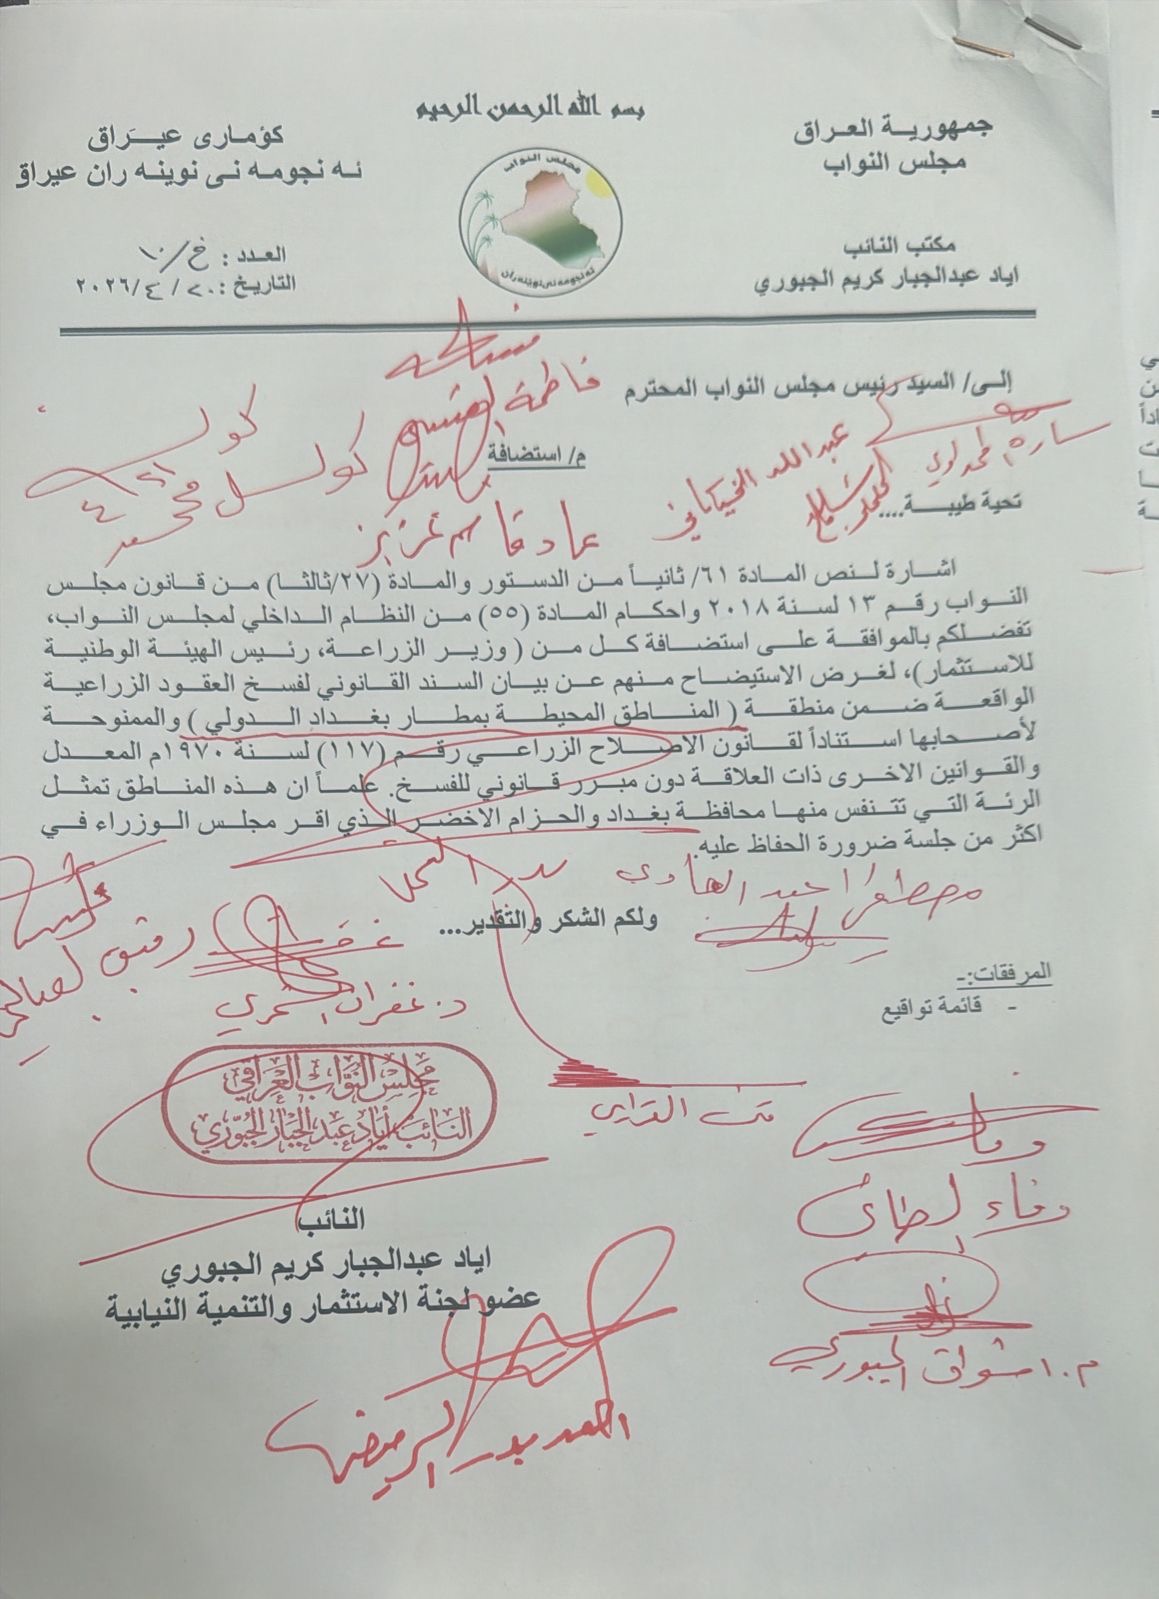 بسم الله الرحمن الرحيم
جمهورية العراق
مجلس النواب
كؤمارى عيراق
ئه نجومه نى نوينه ران عيراق
مجلس النواب
ئه نجومه نى نوينه ران
مكتب النائب
اياد عبدالجبار كريم الجبوري
العدد : خ/١٠
التاريخ : ٢٠/ ٤/ ٢٠٢٦
إلى/ السيد رئيس مجلس النواب المحترم
م/ استضافة
تحية طيبة....
عبد الله الخيكاني
عماد قاسم عزيز
اشارة لنص المادة ٦١/ ثانياً من الدستور والمادة (٢٧/ثالثا) من قانون مجلس
النواب رقم ١٣ لسنة ٢٠١٨ واحكام المادة (٥٥) من النظام الداخلي لمجلس النواب،
تفضلكم بالموافقة على استضافة كل من ( وزير الزراعة، رئيس الهيئة الوطنية
للاستثمار)، لغرض الاستيضاح منهم عن بيان السند القانوني لفسخ العقود الزراعية
الواقعة ضمن منطقة ( المناطق المحيطة بمطار بغداد الدولي ) والممنوحة
لأصحابها استناداً لقانون الاصلاح الزراعي رقم (١١٧) لسنة ١٩٧٠م المعدل
والقوانين الاخرى ذات العلاقة دون مبرر قانوني للفسخ. علماً ان هذه المناطق تمثل
الرئة التي تتنفس منها محافظة بغداد والحزام الاخضر الذي اقر مجلس الوزراء في
اكثر من جلسة ضرورة الحفاظ عليه.
ولكم الشكر والتقدير...
د. غفران الشمري
المرفقات:-
- قائمة تواقيع
مجلس النواب العراقي
النائب أياد عبد الجبار الجبوري
وفاء الطائي
م. اشواق الجبوري
النائب
اياد عبدالجبار كريم الجبوري
عضو لجنة الاستثمار والتنمية النيابية